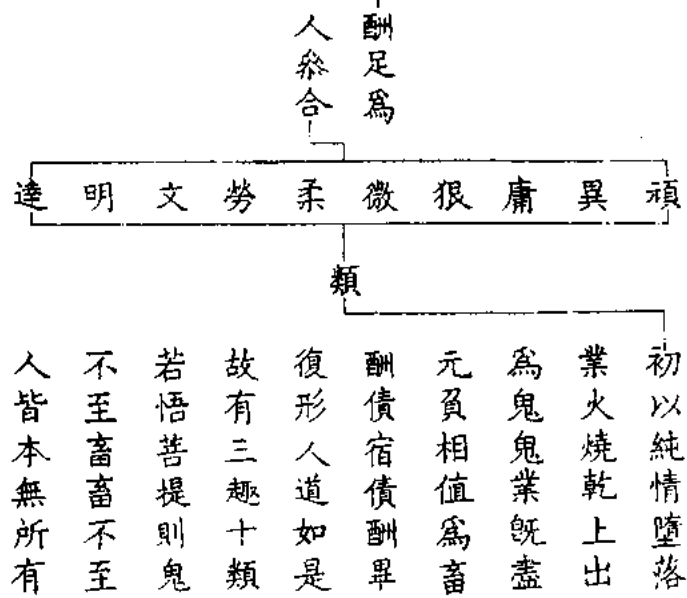 酬足為
人參合
頑異庸狠微柔勞文明達
類
初以純情墮落
業火燒乾上出
為鬼鬼業既盡
元負相值為畜
酬債宿債酬畢
復形人道如是
故有三趣十類
若悟菩提則鬼
不至畜畜不至
人皆本無所有